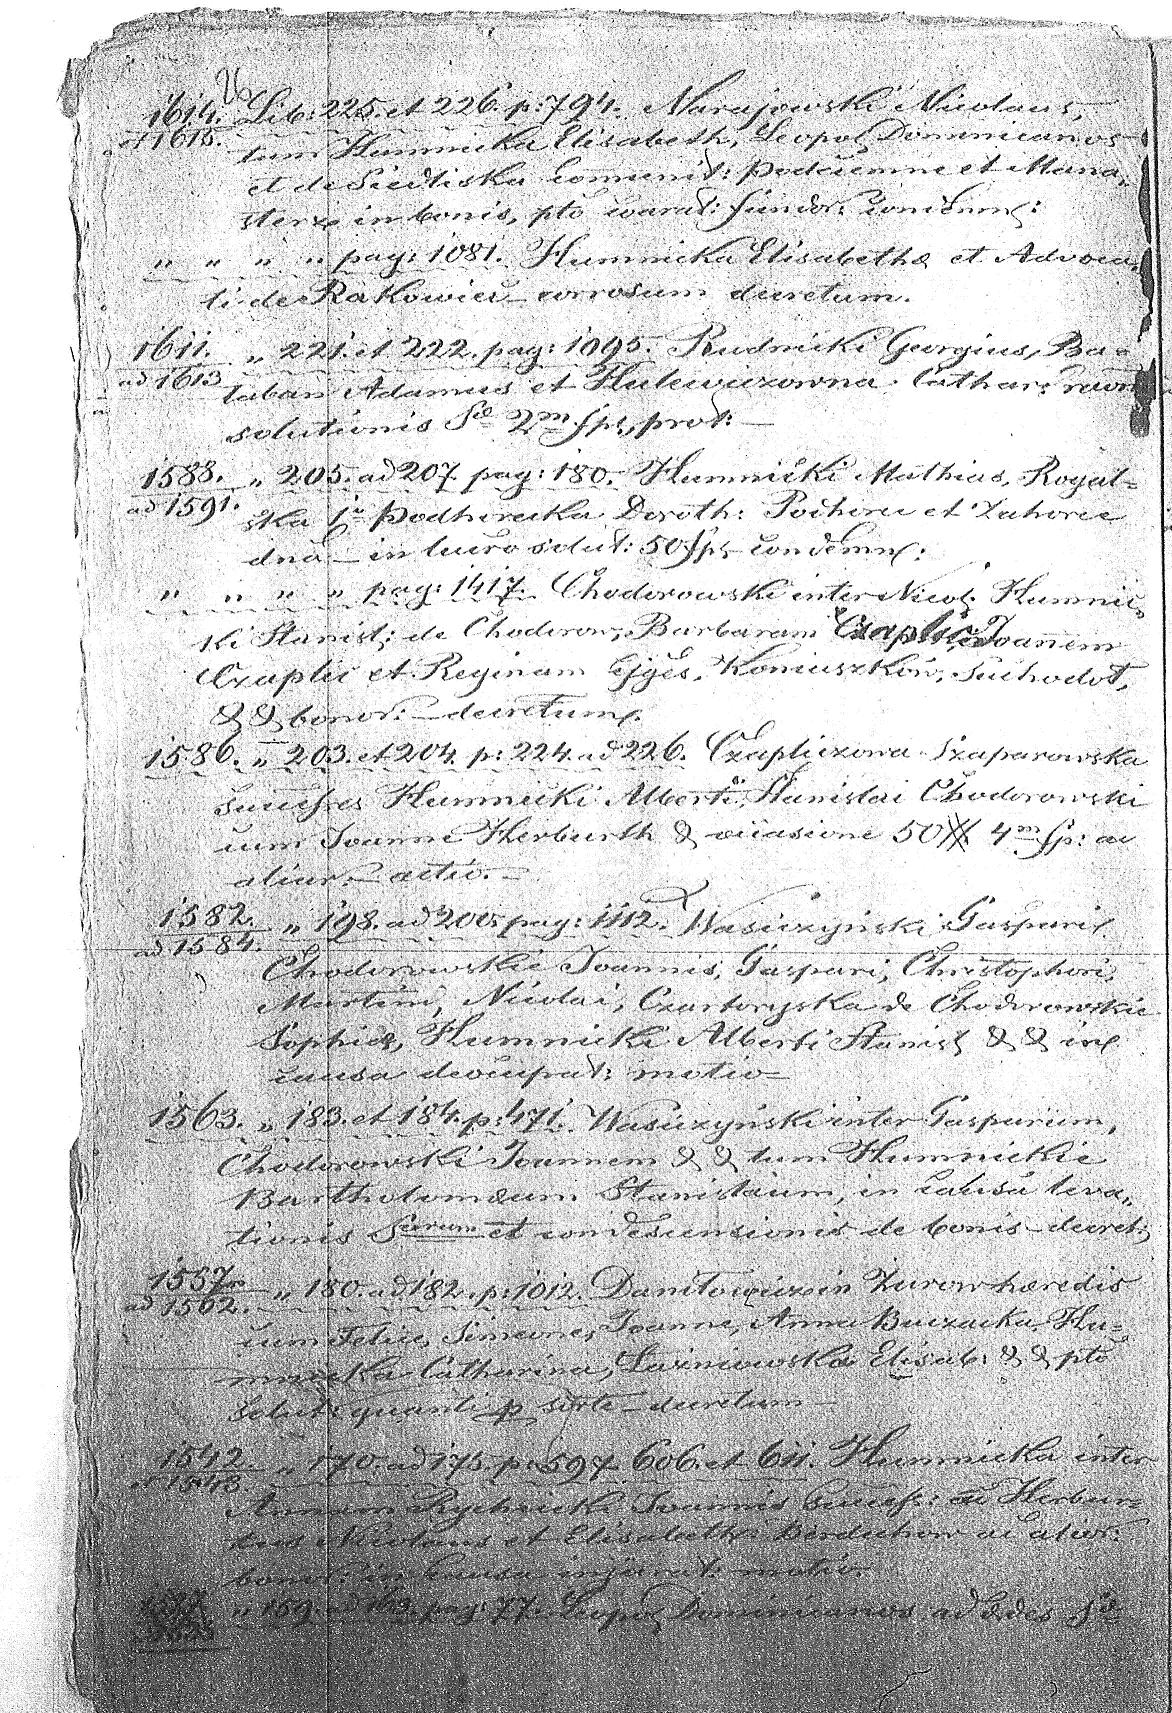 26
1614. Lib: 225. et 226. p: 794. Narajowski Nicolaus,
et 1615. tum Humnicka Elisabeth, Leopol Dominicanos
et de Siedliska comunit: Podciemne et Mona„
sterze in bonis, pto
„ „ „ „ pag: 1081. Humnicka Elisabetha et Advoca„
ti de Rakowiec corrosum decretum.
1611. „ 221. et 222. pag: 1095. Rudnicki Georgius, Ba=
ad 1613 laban Adamus et Hulewiczowna Cathar:
solutionis 2m prot:
1588. „ 205. ad 207. pag: 180. Humnicki Mathias, Rogal=
ad 1591. ska Podhorecka Doroth: Pochorce et Zahorce
in lucro solut: 50 condemn:
„ „ „ „ pag: 1417. Chodorowski inter Nicol. Humnic„
ki Stanisl: de Chodorow, Barbaram Joannem
Czaplic et Reginam Ejges, Koniuszkow, Suchodol,
& & bonor: decretum.
1586. „ 203. et 204. p: 224. ad 226. Czapliczowa Szaparowska
Humnicki Alberti, Stanislai Chodorowski
cum Joanne Herburth & occasione 50 4m fp: ac
aliar: actio.
1582. „ 198. ad 200. pag: 1112. Wasiczynski Gaspari
ad 1584. Chodorowskie Joannis, Gaspari, Christophori,
Martini, Nicolai, Czartoryska de Chodorowskie
Sophiae, Humnicki Alberti Stanisl & & in
causa deocupat: motio
1563. „ 183. et 184. p: 471. Wasiczynski inter Gasparum,
Chodorowski Joannem & & tum Humnickie
Bartholomaeum Stanislaum, in causa leva„
tionis et condescensionis de bonis decret:
1557. „ 180. ad 182. p: 1012. Danilowicz in Zurow haeredis
ad 1562. cum Felice, Simeone, Joanne, Anna Buczacka, Hu=
mnicka Catharina, Lazniowska Elisab: & & pto
solut: quanti p decretum
1542. „ 170. ad 175. p: 597 606. et 611. Humnicka inter
Annam Rychcicki Joannis ac Herbur=
tus Nicolaus et Elisabeth ac alior:
bonor: in causa motio.
„ 159. ad 163. pag: 77. Leopol Dominicanos ad